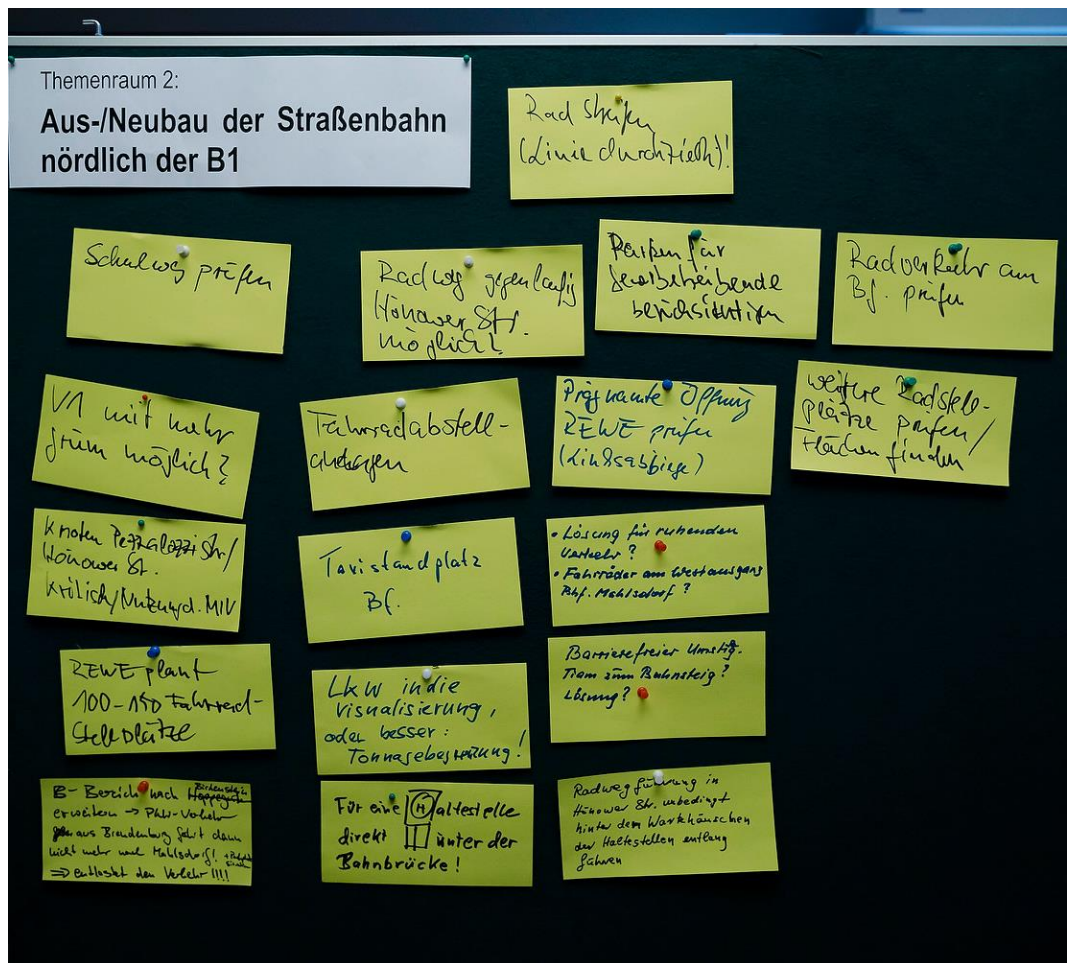 Themenraum 2:
Aus-/Neubau der Straßenbahn
nördlich der B1
Radstreifen
(Linie durchzieh)!
Schulweg prüfen
Radweg gegenläufig
Hönower Str.
möglich?
Parken für
Gewerbetreibende
berücksichtigen
Radverkehr am
Bf. prüfen
V1 mit mehr
grün möglich?
Fahrradabstell-
anlagen
Prägnante Öffnung
REWE prüfen
(Linksabbiege)
weitere Radstell-
plätze prüfen/
Flächen finden
Knoten Pestalozzistr/
Hönower St.
kritisch/Nutzung d. MIV
Taxistandplatz
Bf.
• Lösung für ruhenden
Verkehr?
• Fahrräder am Westausgang
Bhf. Mahlsdorf?
REWE plant
100-150 Fahrrad-
Stellplätze
LKW in die
Visualisierung,
oder besser:
Tonnagebegrenzung!
Barrierefreier Umstieg.
Tram zum Bahnsteig?
Lösung?
B-Bereich nach Birkenstein
erweitern → PKW-Verkehr
aus Brandenburg fährt dann
nicht mehr nach Mahlsdorf!
⇒ entlastet den Verkehr!!!!
Für eine Haltestelle
direkt unter der
Bahnbrücke!
Radwegführung in
Hönower Str. unbedingt
hinter dem Wartehäuschen
der Haltestellen entlang
führen